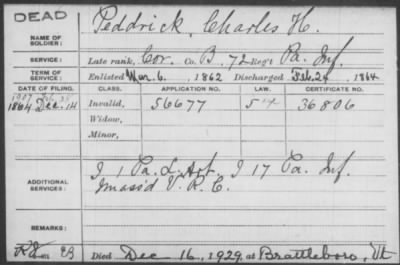 DEAD
NAME OF SOLDIER: Peddrick, Charles H.
SERVICE: Late rank, Cor. Co. B, 72 Reg't Pa. Inf.
TERM OF SERVICE: Enlisted Mar. 6. 1862 Discharged Feb. 24 1864
DATE OF FILING. CLASS. APPLICATION NO. LAW. CERTIFICATE NO.
1907
1864 Dec. 14 Invalid, 56677 36806
Widow,
Minor,
ADDITIONAL SERVICES: I 1 Pa. L. Art. I 17 Pa. Inf.
V. R. C.
REMARKS:
Died Dec 16, 1929, at Brattleboro, Vt